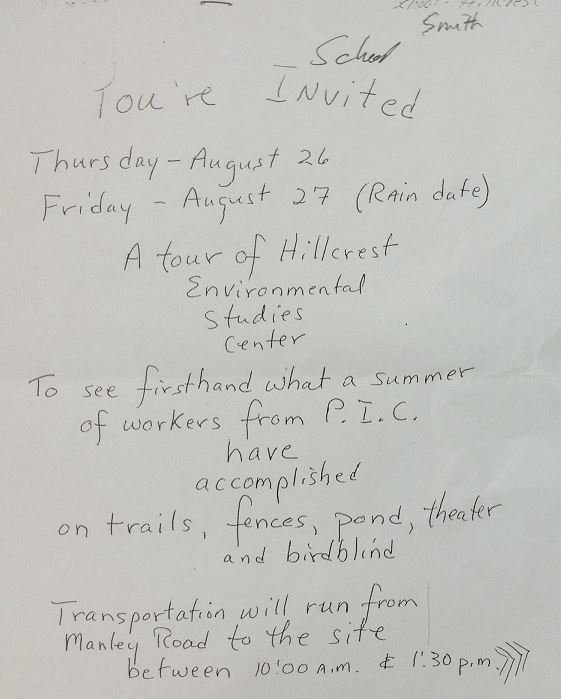 School - Hillcrest
Smith
School
You're Invited
Thursday - August 26
Friday - August 27 (Rain date)
A tour of Hillcrest
Environmental
Studies
Center
To see firsthand what a summer
of workers from P.I.C.
have
accomplished
on trails, fences, pond, theater
and birdblind
Transportation will run from
Manley Road to the site
between 10:00 A.m. & 1:30 p.m.